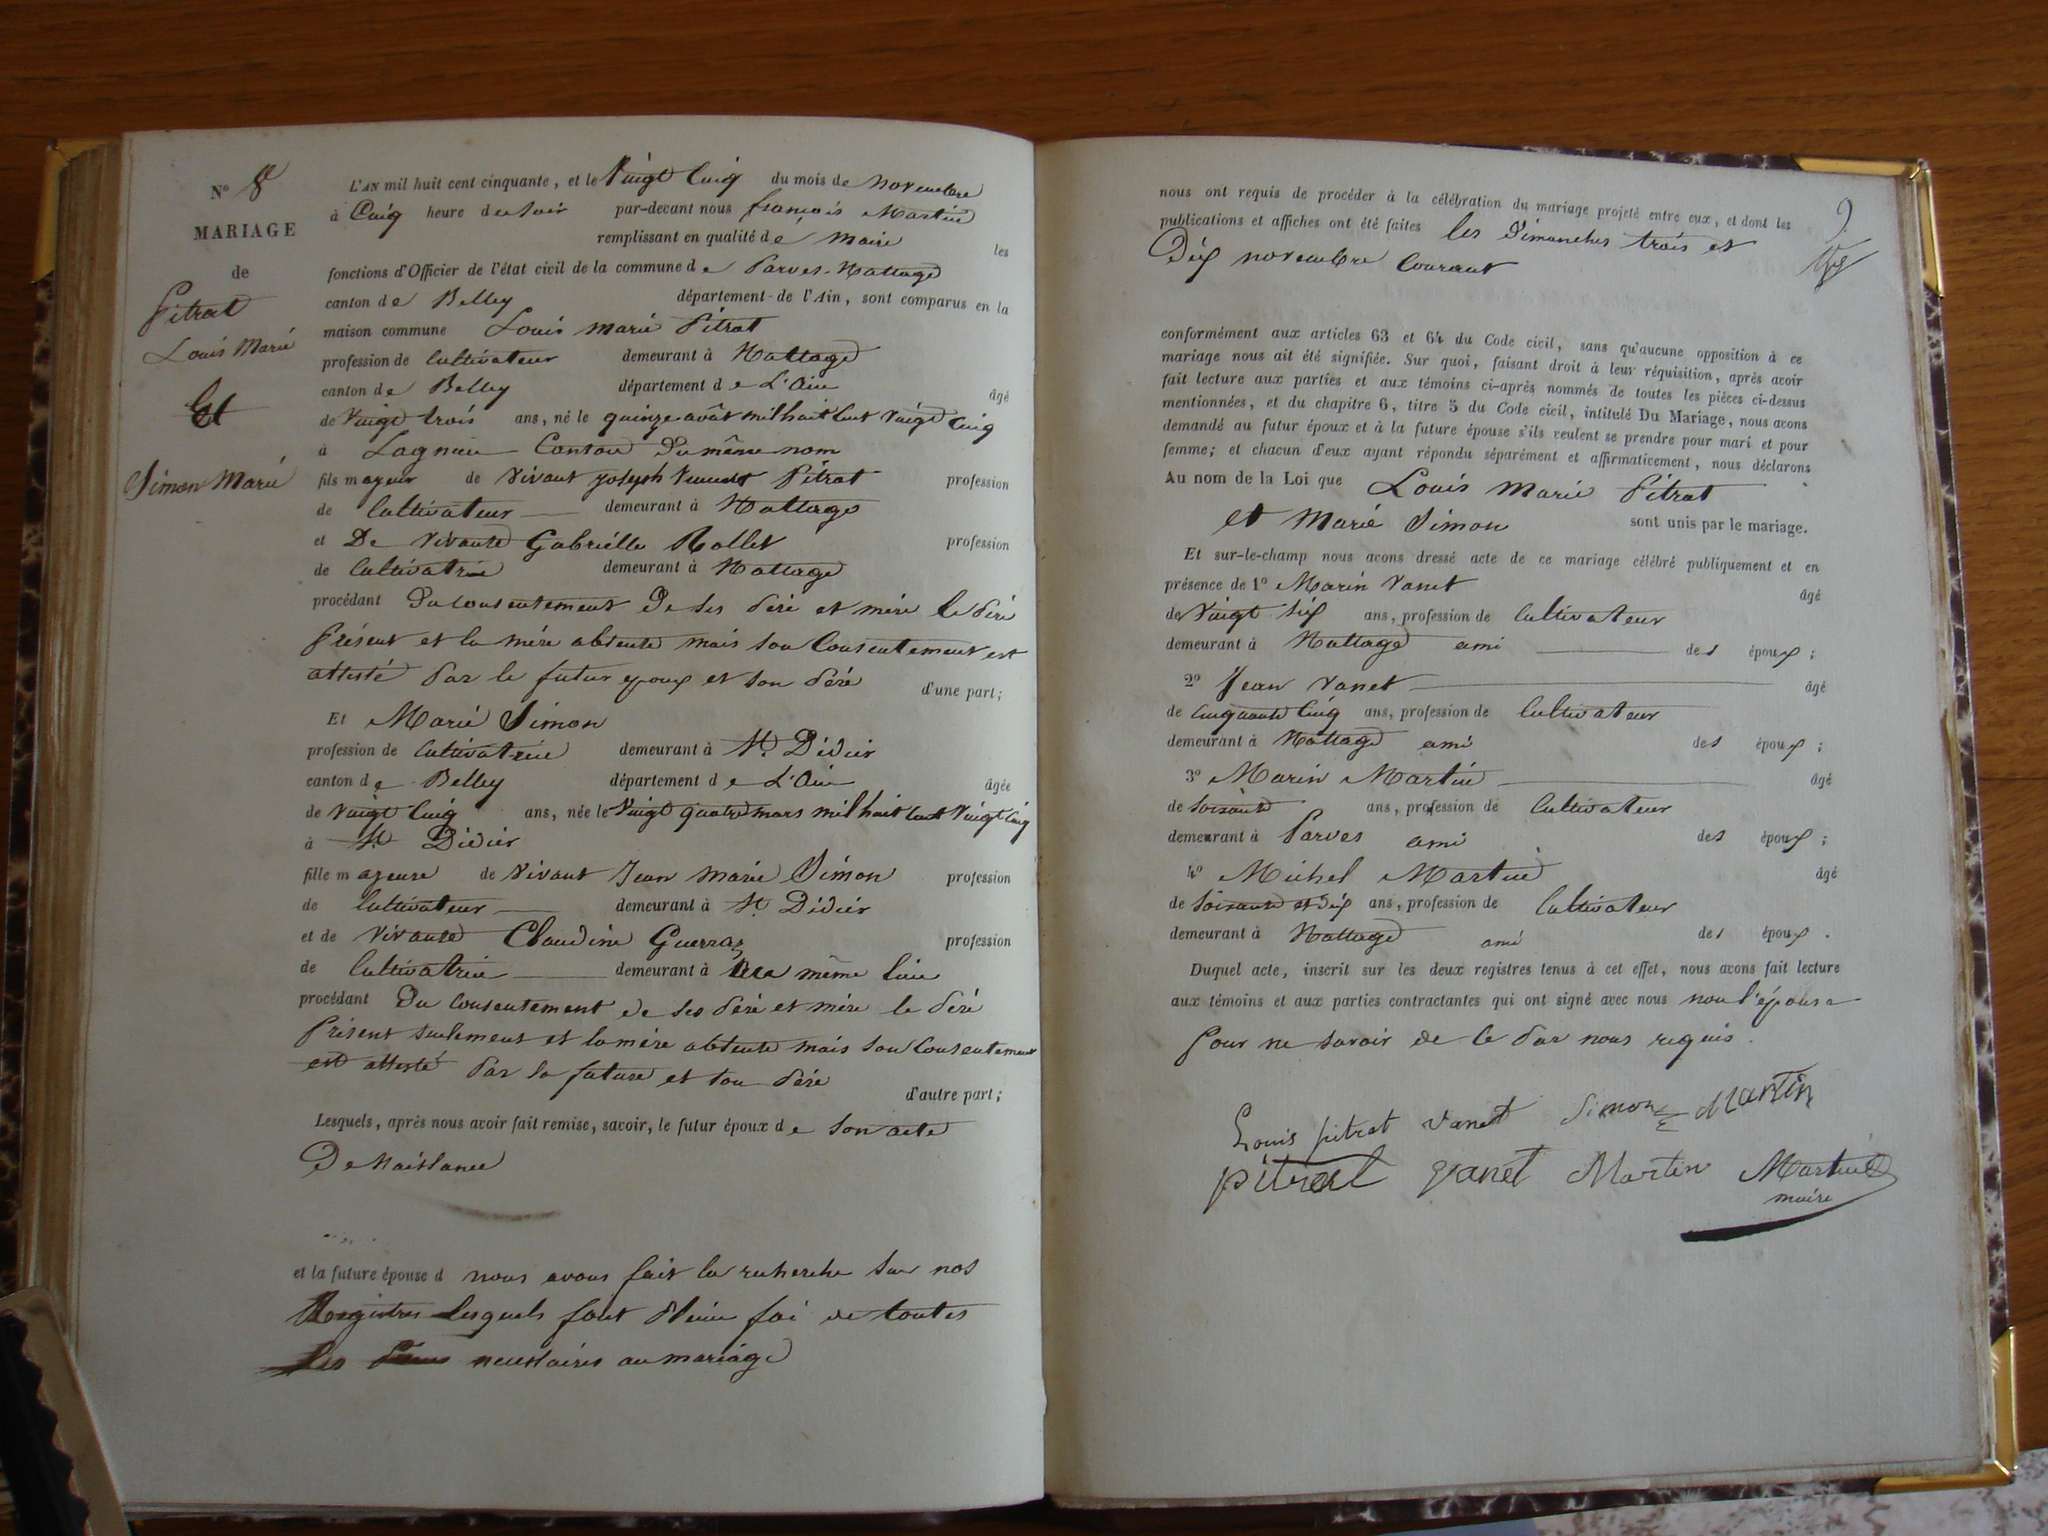 N° 8
MARIAGE
de
Pitrat
Louis Marie
Et
Simon Marie
L'AN mil huit cent cinquante, et le Vingt Cinq du mois de novembre
à Cinq heure du soir par-devant nous françois Martin
remplissant en qualité de maire les
fonctions d'Officier de l'état civil de la commune de Parves-Nattage
canton de Belley département de l'Ain, sont comparus en la
maison commune Louis marie Pitrat
profession de Cultivateur demeurant à Nattage
canton de Belley département de L'Ain âgé
de Vingt trois ans, né le quinze août mil huit Cent Vingt Cinq
à Lagnieu Canton du même nom
fils majeur de vivant joseph Pitrat profession
de Cultivateur demeurant à Nattage
et De vivante Gabrielle Rollet profession
de Cultivatrice demeurant à Nattage
procédant Du consentement De ses père et mère le père
Présent et la mère absente mais son Consentement est
attesté Par le futur epoux et son père d'une part;
Et Marie Simon
profession de Cultivatrice demeurant à St Didier
canton de Belley département de L'Ain âgée
de vingt Cinq ans, née le Vingt quatre mars mil huit Cent Vingt Cinq
à St Didier
fille majeure de vivant Jean marie Simon profession
de Cultivateur demeurant à St Didier
et de vivante Claudine Guerraz profession
de Cultivatrice demeurant à même lieu
procédant Du consentement de ses père et mère le père
Présent seulement et la mère absente mais son Consentement
est attesté Par la future et son père d'autre part;
Lesquels, après nous avoir fait remise, savoir, le futur époux de son acte
De Naissance
et la future épouse d nous avons fait la recherche sur nos
Registres Lesquels font Pleine foi de toutes
Les necessaires au mariage
nous ont requis de procéder à la célébration du mariage projeté entre eux, et dont les
publications et affiches ont été faites les Dimanches trois et
Dix novembre Courant
9
conformément aux articles 63 et 64 du Code civil, sans qu'aucune opposition à ce
mariage nous ait été signifiée. Sur quoi, faisant droit à leur réquisition, après avoir
fait lecture aux parties et aux témoins ci-après nommés de toutes les pièces ci-dessus
mentionnées, et du chapitre 6, titre 5 du Code civil, intitulé Du Mariage, nous avons
demandé au futur époux et à la future épouse s'ils veulent se prendre pour mari et pour
femme; et chacun d'eux ayant répondu séparément et affirmativement, nous déclarons
Au nom de la Loi que Louis marie Pitrat
et Marie Simon sont unis par le mariage.
Et sur-le-champ nous avons dressé acte de ce mariage célébré publiquement et en
présence de 1° Marin Vanet âgé
de Vingt six ans, profession de Cultivateur
demeurant à Nattage ami des époux;
2° Jean Vanet âgé
de Cinquante Cinq ans, profession de Cultivateur
demeurant à Nattage ami des époux;
3° Marin Martin âgé
de Soixante ans, profession de Cultivateur
demeurant à Parves ami des époux;
4° Michel Martin âgé
de Soixante et dix ans, profession de Cultivateur
demeurant à Nattage ami des époux.
Duquel acte, inscrit sur les deux registres tenus à cet effet, nous avons fait lecture
aux témoins et aux parties contractantes qui ont signé avec nous non l'épouse
Pour ne savoir de Ce Par nous requis.
Louis pitrat Vanet Simon Martin
pitrat Vanet Martin Martin
maire